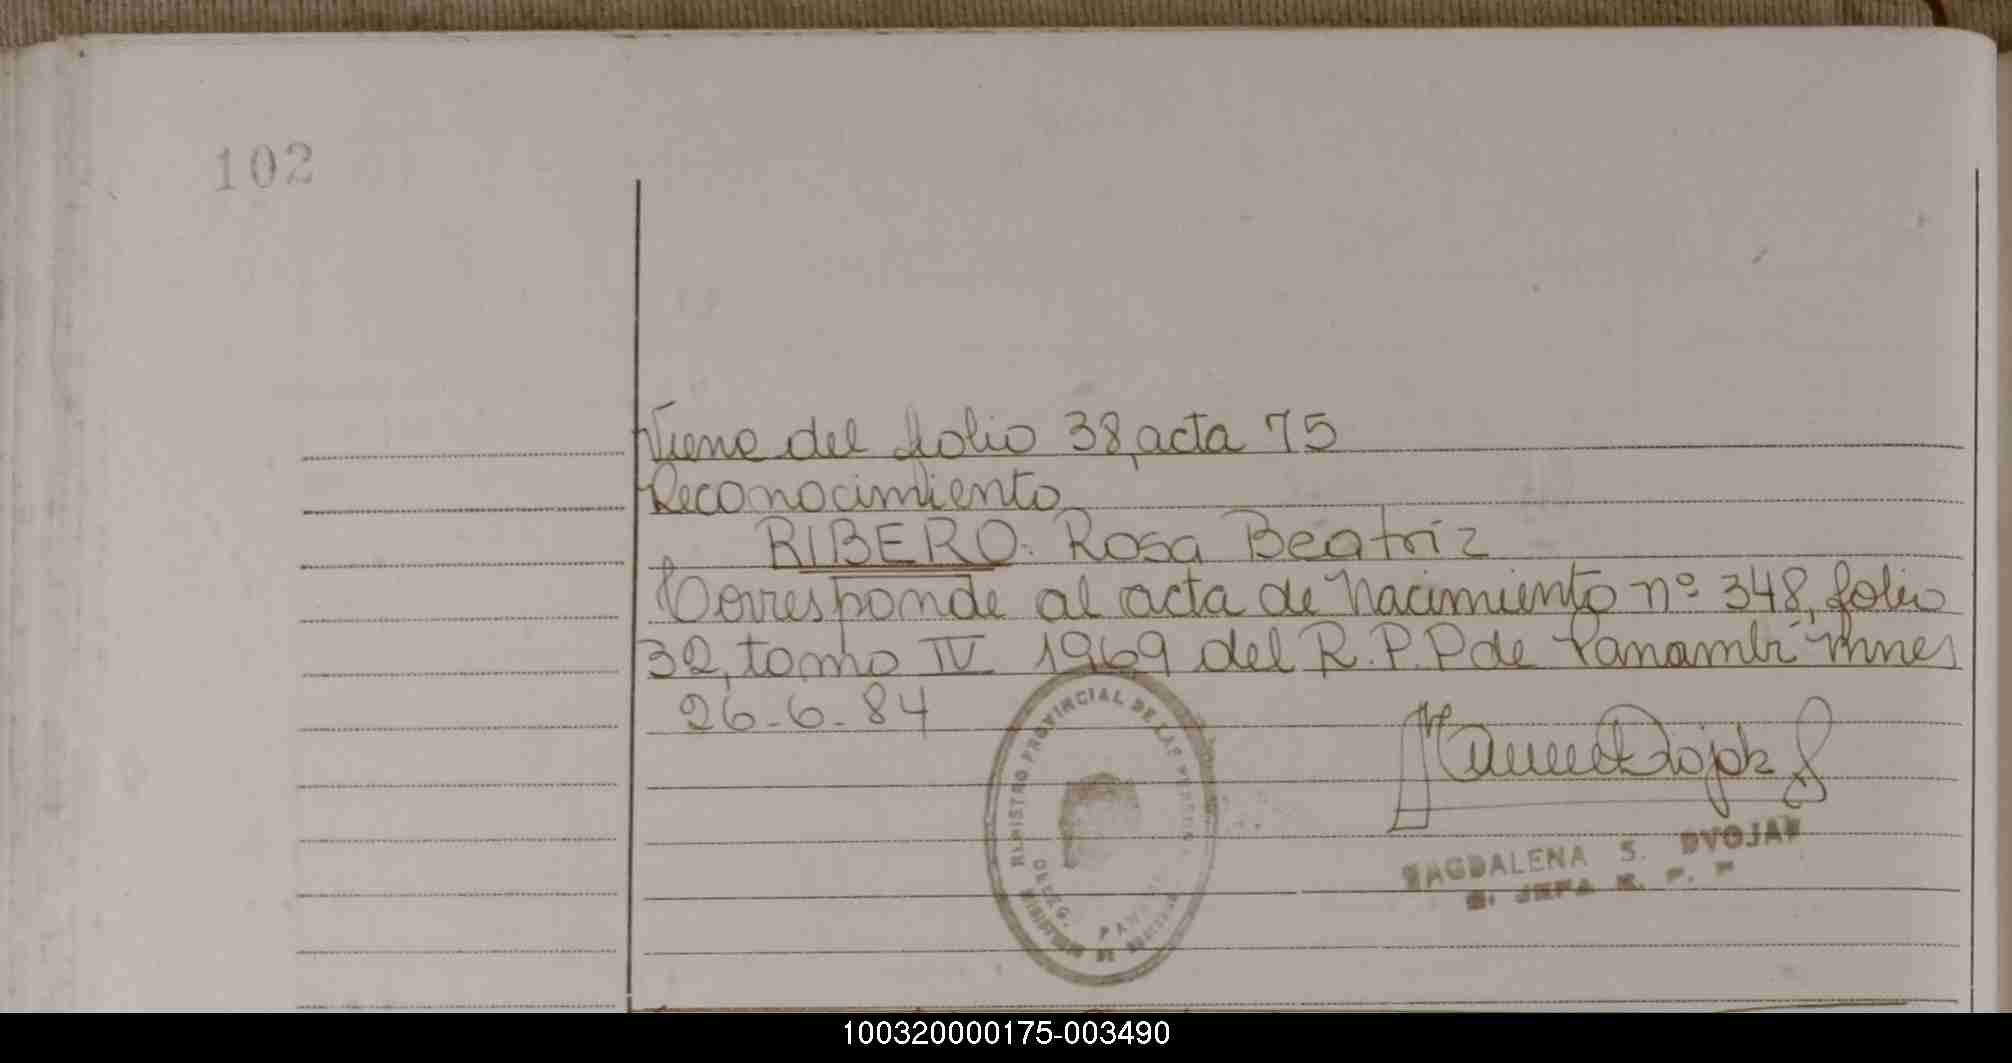 102
Viene del folio 38, acta 75
Reconocimiento
RIBERO. Rosa Beatriz
Corresponde al acta de nacimiento nº 348, folio
32, tomo IV 1969 del R.P.P de Panambi Mnes
26-6-84
REGISTRO PROVINCIAL DE LAS
MAGDALENA S. DVOJAK
JEFA R. P. P
100320000175-003490